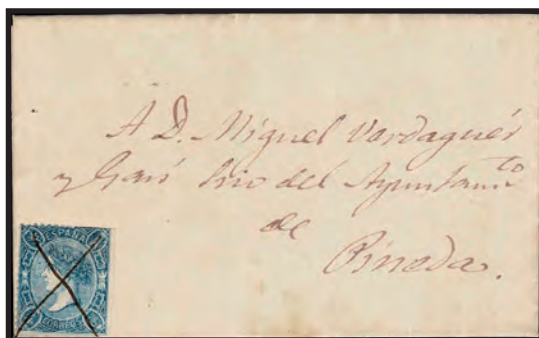 A D. Miguel Vardaguér
y Garí Srio del Ayuntam.to
de
Pineda.
ESPAÑA
CORREOS